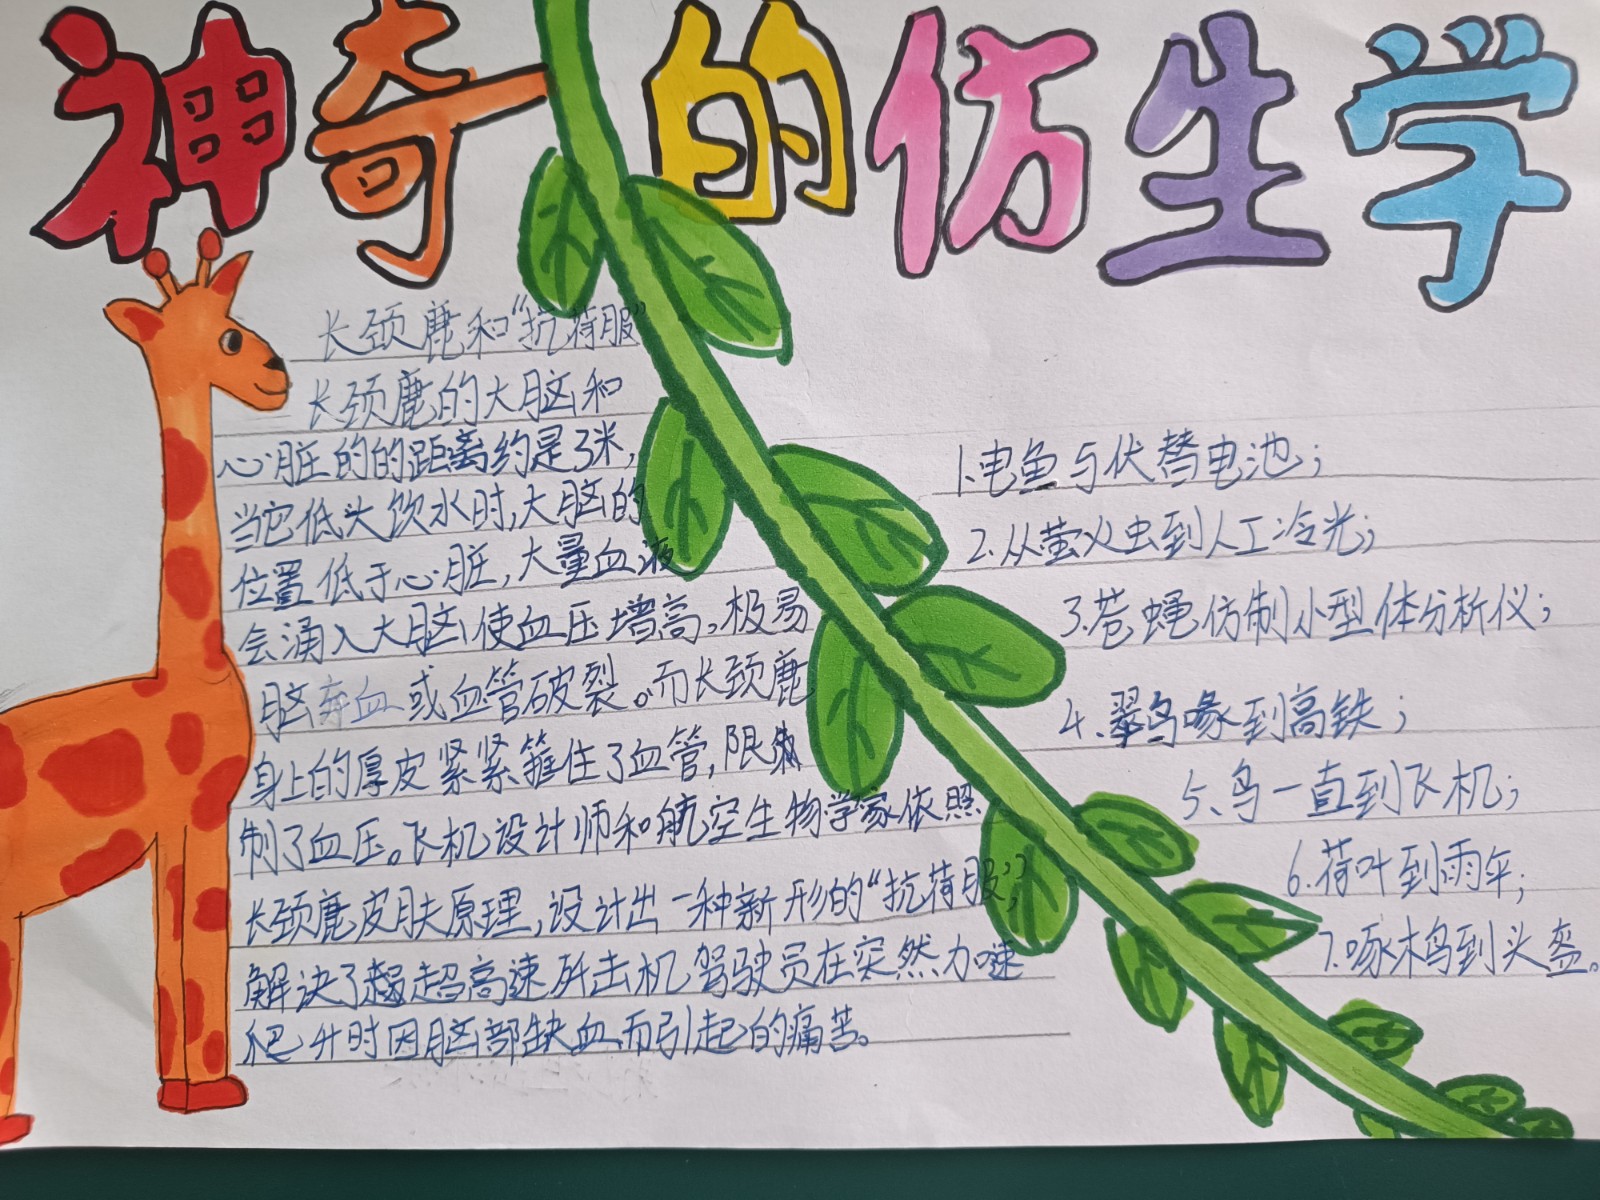 神奇的仿生学
长颈鹿和“抗荷服”
长颈鹿的大脑和
心脏的的距离约是3米,
当它低头饮水时,大脑的
位置低于心脏,大量血液
会涌入大脑,使血压增高。极易
脑充血或血管破裂。而长颈鹿
身上的厚皮紧紧箍住了血管,限
制了血压。飞机设计师和航空生物学家依照
长颈鹿皮肤原理,设计出一种新形的“抗荷服”,
解决了超超高速歼击机驾驶员在突然力速
爬升时因脑部缺血而引起的痛苦。
1.电鱼与伏替电池;
2.从萤火虫到人工冷光;
3.苍蝇仿制小型体分析仪;
4.翠鸟喙到高铁;
5、鸟一直到飞机;
6.荷叶到雨伞;
7.啄木鸟到头盔。